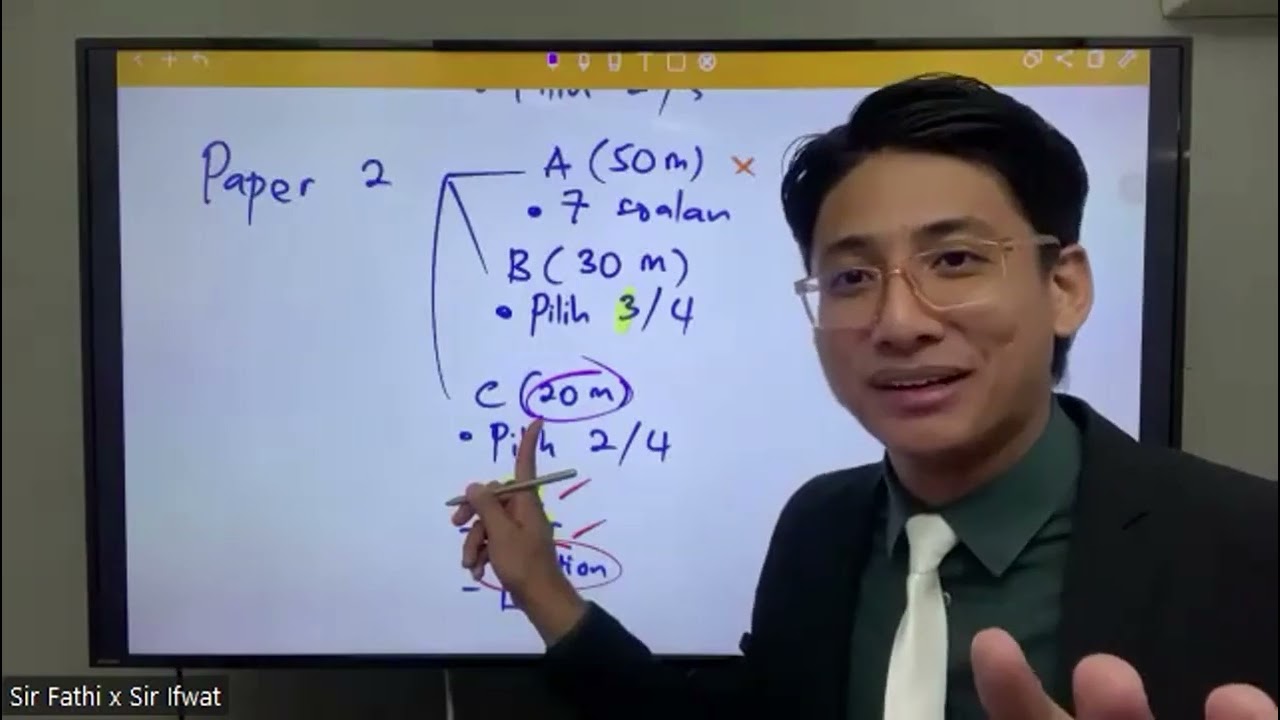 Paper 2
A (50 m) ×
• 7 soalan
B (30 m)
• Pilih 3/4
C (20 m)
• Pilih 2/4
Sir Fathi x Sir Ifwat